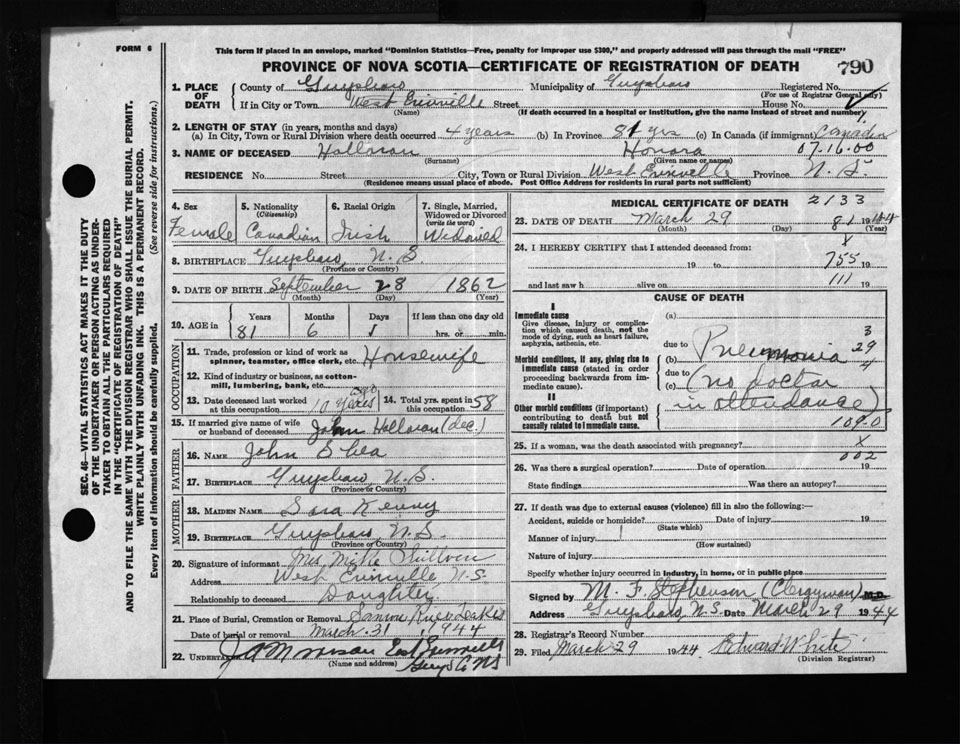 FORM 6
This form if placed in an envelope, marked "Dominion Statistics—Free, penalty for improper use $300," and properly addressed will pass through the mail "FREE"
PROVINCE OF NOVA SCOTIA—CERTIFICATE OF REGISTRATION OF DEATH 790
SEC. 46—VITAL STATISTICS ACT MAKES IT THE DUTY
OF THE UNDERTAKER OR PERSON ACTING AS UNDER-
TAKER TO OBTAIN ALL THE PARTICULARS REQUIRED
IN THE "CERTIFICATE OF REGISTRATION OF DEATH"
AND TO FILE THE SAME WITH THE DIVISION REGISTRAR WHO SHALL ISSUE THE BURIAL PERMIT.
WRITE PLAINLY WITH UNFADING INK. THIS IS A PERMANENT RECORD.
Every item of information should be carefully supplied. (See reverse side for instructions.)
1. PLACE OF DEATH County of Guysboro Municipality of Guysboro Registered No.
(For use of Registrar General only)
If in City or Town West Erinville Street House No.
(Name) (If death occurred in a hospital or institution, give the name instead of street and number)
2. LENGTH OF STAY (in years, months and days)
(a) In City, Town or Rural Division where death occurred 4 years (b) In Province 81 yrs (c) In Canada (if immigrant) Canadian
3. NAME OF DECEASED Halloran Honora 07.16.00
(Surname) (Given name or names)
RESIDENCE No. Street City, Town or Rural Division West Erinville Province N. S.
(Residence means usual place of abode. Post Office Address for residents in rural parts not sufficient)
4. Sex Female
5. Nationality (Citizenship) Canadian
6. Racial Origin Irish
7. Single, Married, Widowed or Divorced (write the word) Widowed
8. BIRTHPLACE Guysboro, N. S.
(Province or Country)
9. DATE OF BIRTH September 28 1862
(Month) (Day) (Year)
10. AGE in Years Months Days If less than one day old
81 6 1 hrs. or min.
OCCUPATION
11. Trade, profession or kind of work as spinner, teamster, office clerk, etc. Housewife
12. Kind of industry or business, as cotton-mill, lumbering, bank, etc.
13. Date deceased last worked at this occupation 10 years ago
14. Total yrs. spent in this occupation 58
15. If married give name of wife or husband of deceased John Halloran (dec.)
FATHER
16. NAME John Shea
17. BIRTHPLACE Guysboro, N. S.
(Province or Country)
MOTHER
18. MAIDEN NAME Sara Kenny
19. BIRTHPLACE Guysboro N. S.
(Province or Country)
20. Signature of informant Mrs
Address West Erinville, N. S.
Relationship to deceased Daughter
21. Place of Burial, Cremation or Removal Salmon River Lakes
Date of burial or removal March 31 1944
22. UNDERTAKER J A Morrison East Erinville
(Name and address) Guys Co NS
MEDICAL CERTIFICATE OF DEATH 2133
23. DATE OF DEATH March 29 81 1944
(Month) (Day) (Year)
24. I HEREBY CERTIFY that I attended deceased from: X
19 to 755 19
and last saw h alive on 111 19
CAUSE OF DEATH
I
Immediate cause
Give disease, injury or complication which caused death, not the mode of dying, such as heart failure, asphyxia, asthenia, etc.
(a)
due to 3
Morbid conditions, if any, giving rise to immediate cause (stated in order proceeding backwards from immediate cause).
(b) Pneumonia 29
due to 4
(c) (no doctor
II
in attendance)
Other morbid conditions (if important) contributing to death but not causally related to immediate cause.
109.0
25. If a woman, was the death associated with pregnancy? X
002
26. Was there a surgical operation? Date of operation 19
State findings Was there an autopsy?
27. If death was due to external causes (violence) fill in also the following:—
Accident, suicide or homicide? Date of injury 19
(State which)
Manner of injury
(How sustained)
Nature of injury
Specify whether injury occurred in Industry, in home, or in public place
Signed by M. F. Stephenson (Clergyman) M.D.
Address Guysboro, N. S. Date March 29 1944
28. Registrar's Record Number
29. Filed March 29 1944 Edward White
(Division Registrar)